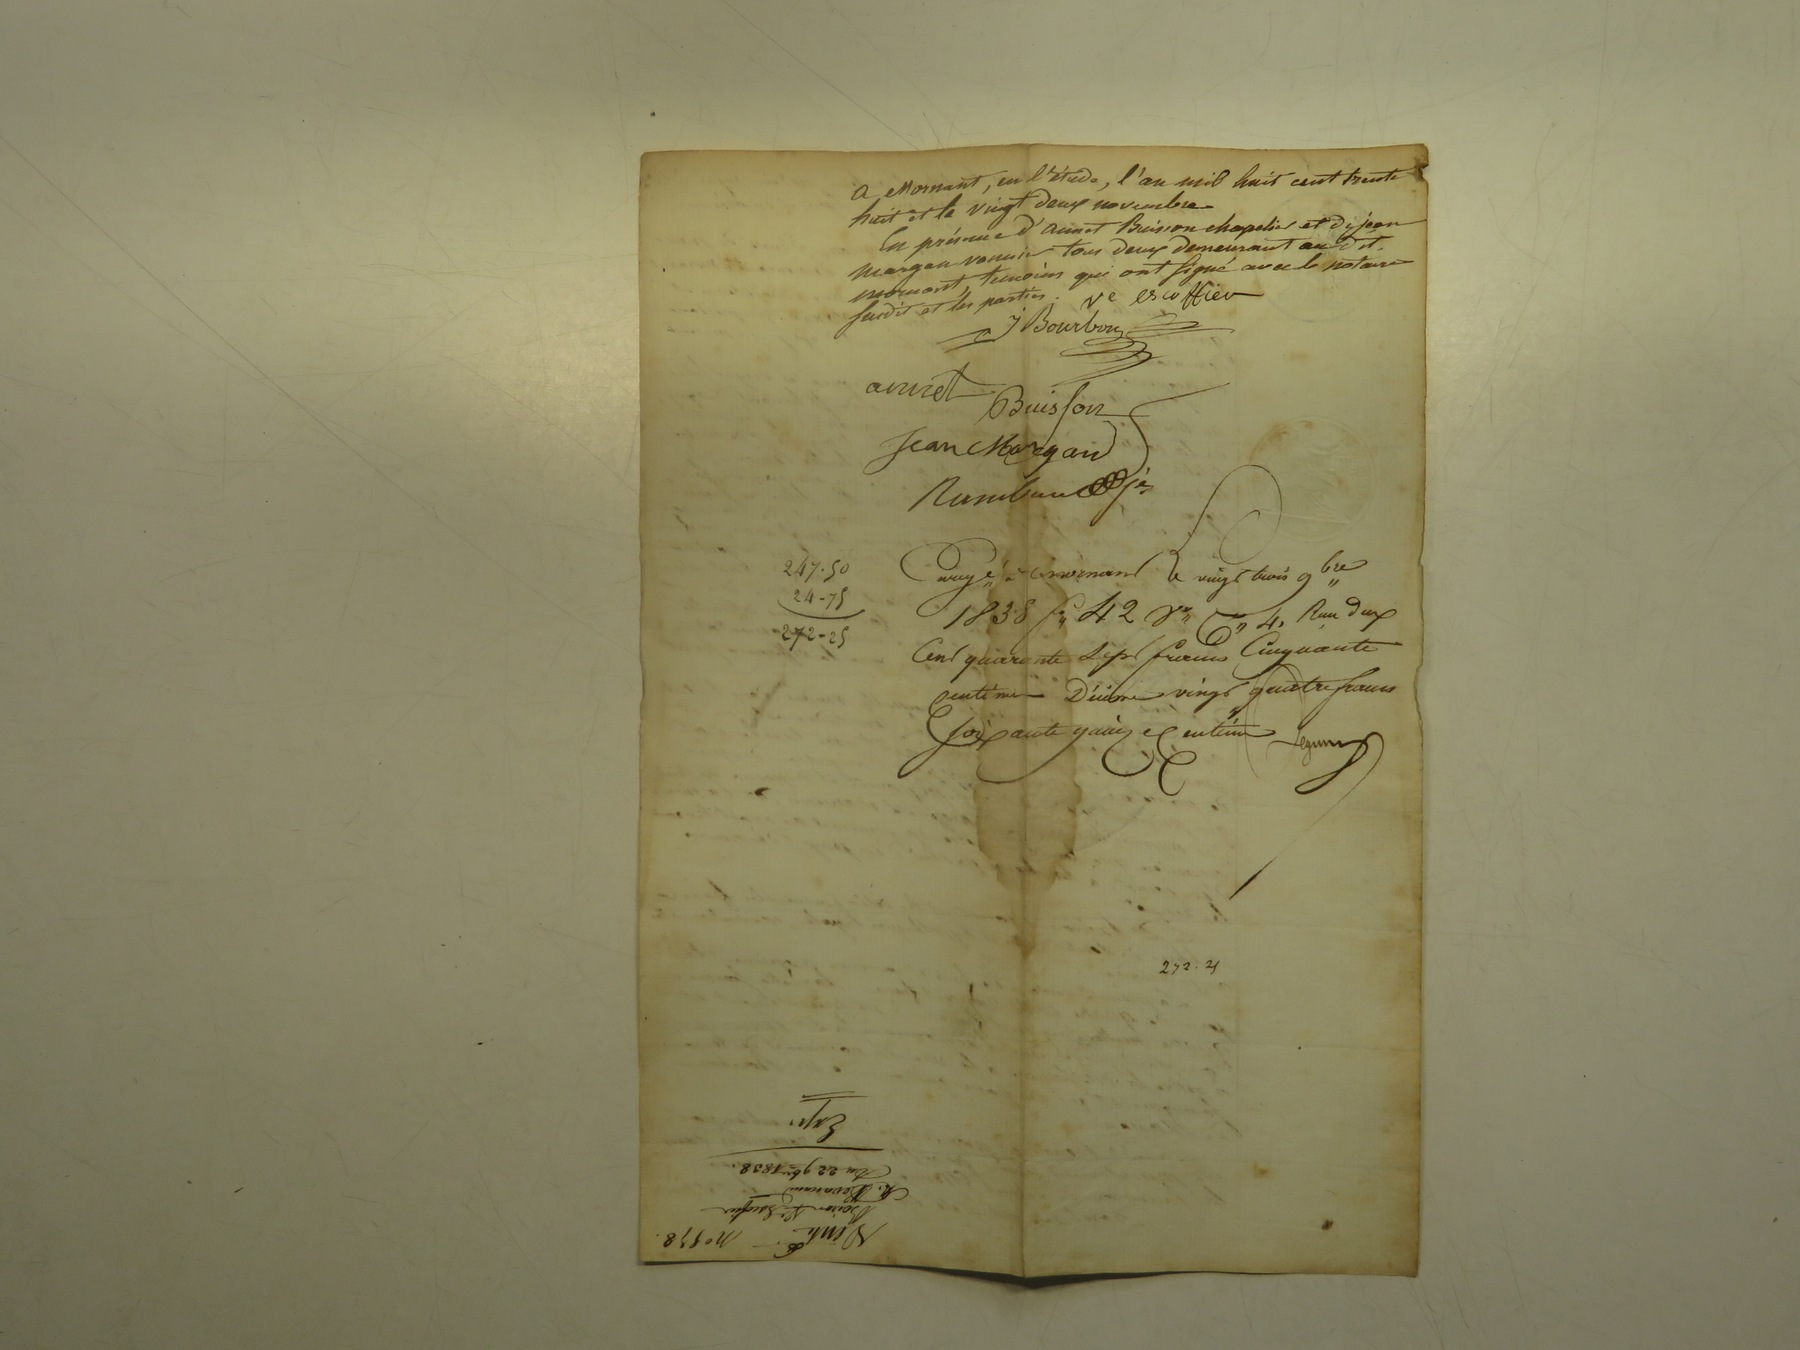 a Mornant, en l'étude, l'an mil huit cent trente
huit et le vingt deux novembre
En présence d'annet Buisson chapelier et de jean
margan vannier tous deux demeurant au dit
mornant, temoins qui ont signé avec le notaire
susdit et les parties. Ve escoffier
J Bourbon
annet
Buisson
Jean Morgand
247.50
24-75
272-25
Enregé à mornant le vingt trois 9bre
1838 fo 42 Vo Co 4. Reçu deux
Cent quarante Sept francs Cinquante
centimes Décime vingt quatre francs
soixante quinze Centimes
272.25
Expn
Du 22 9bre 1838.
Vente
No 578.